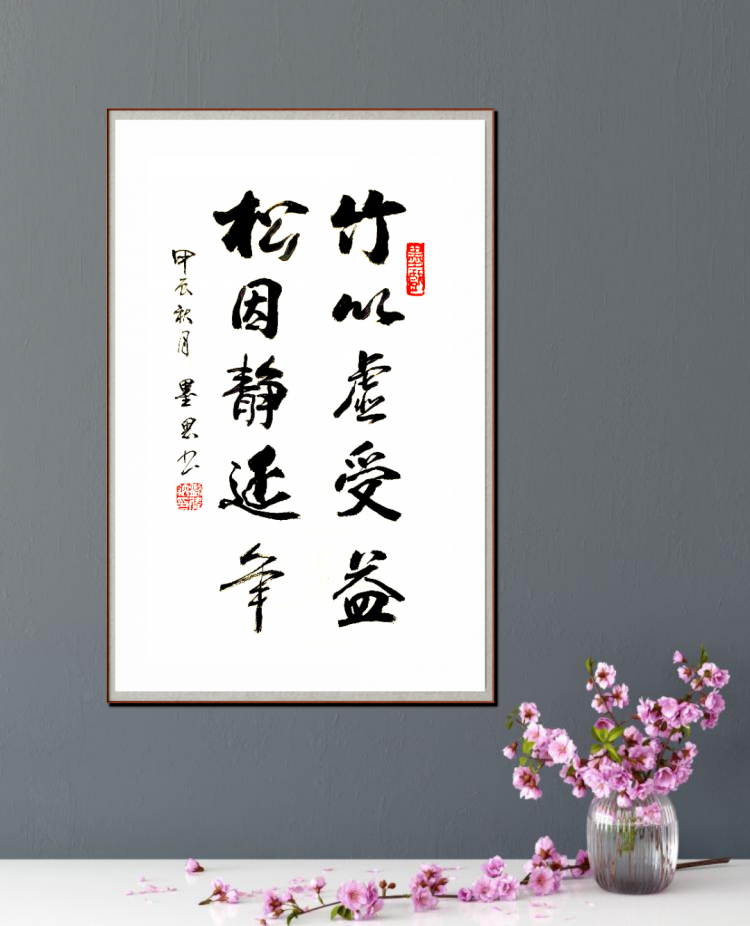 竹以虚受益
松因静延年
甲辰秋月 墨思书